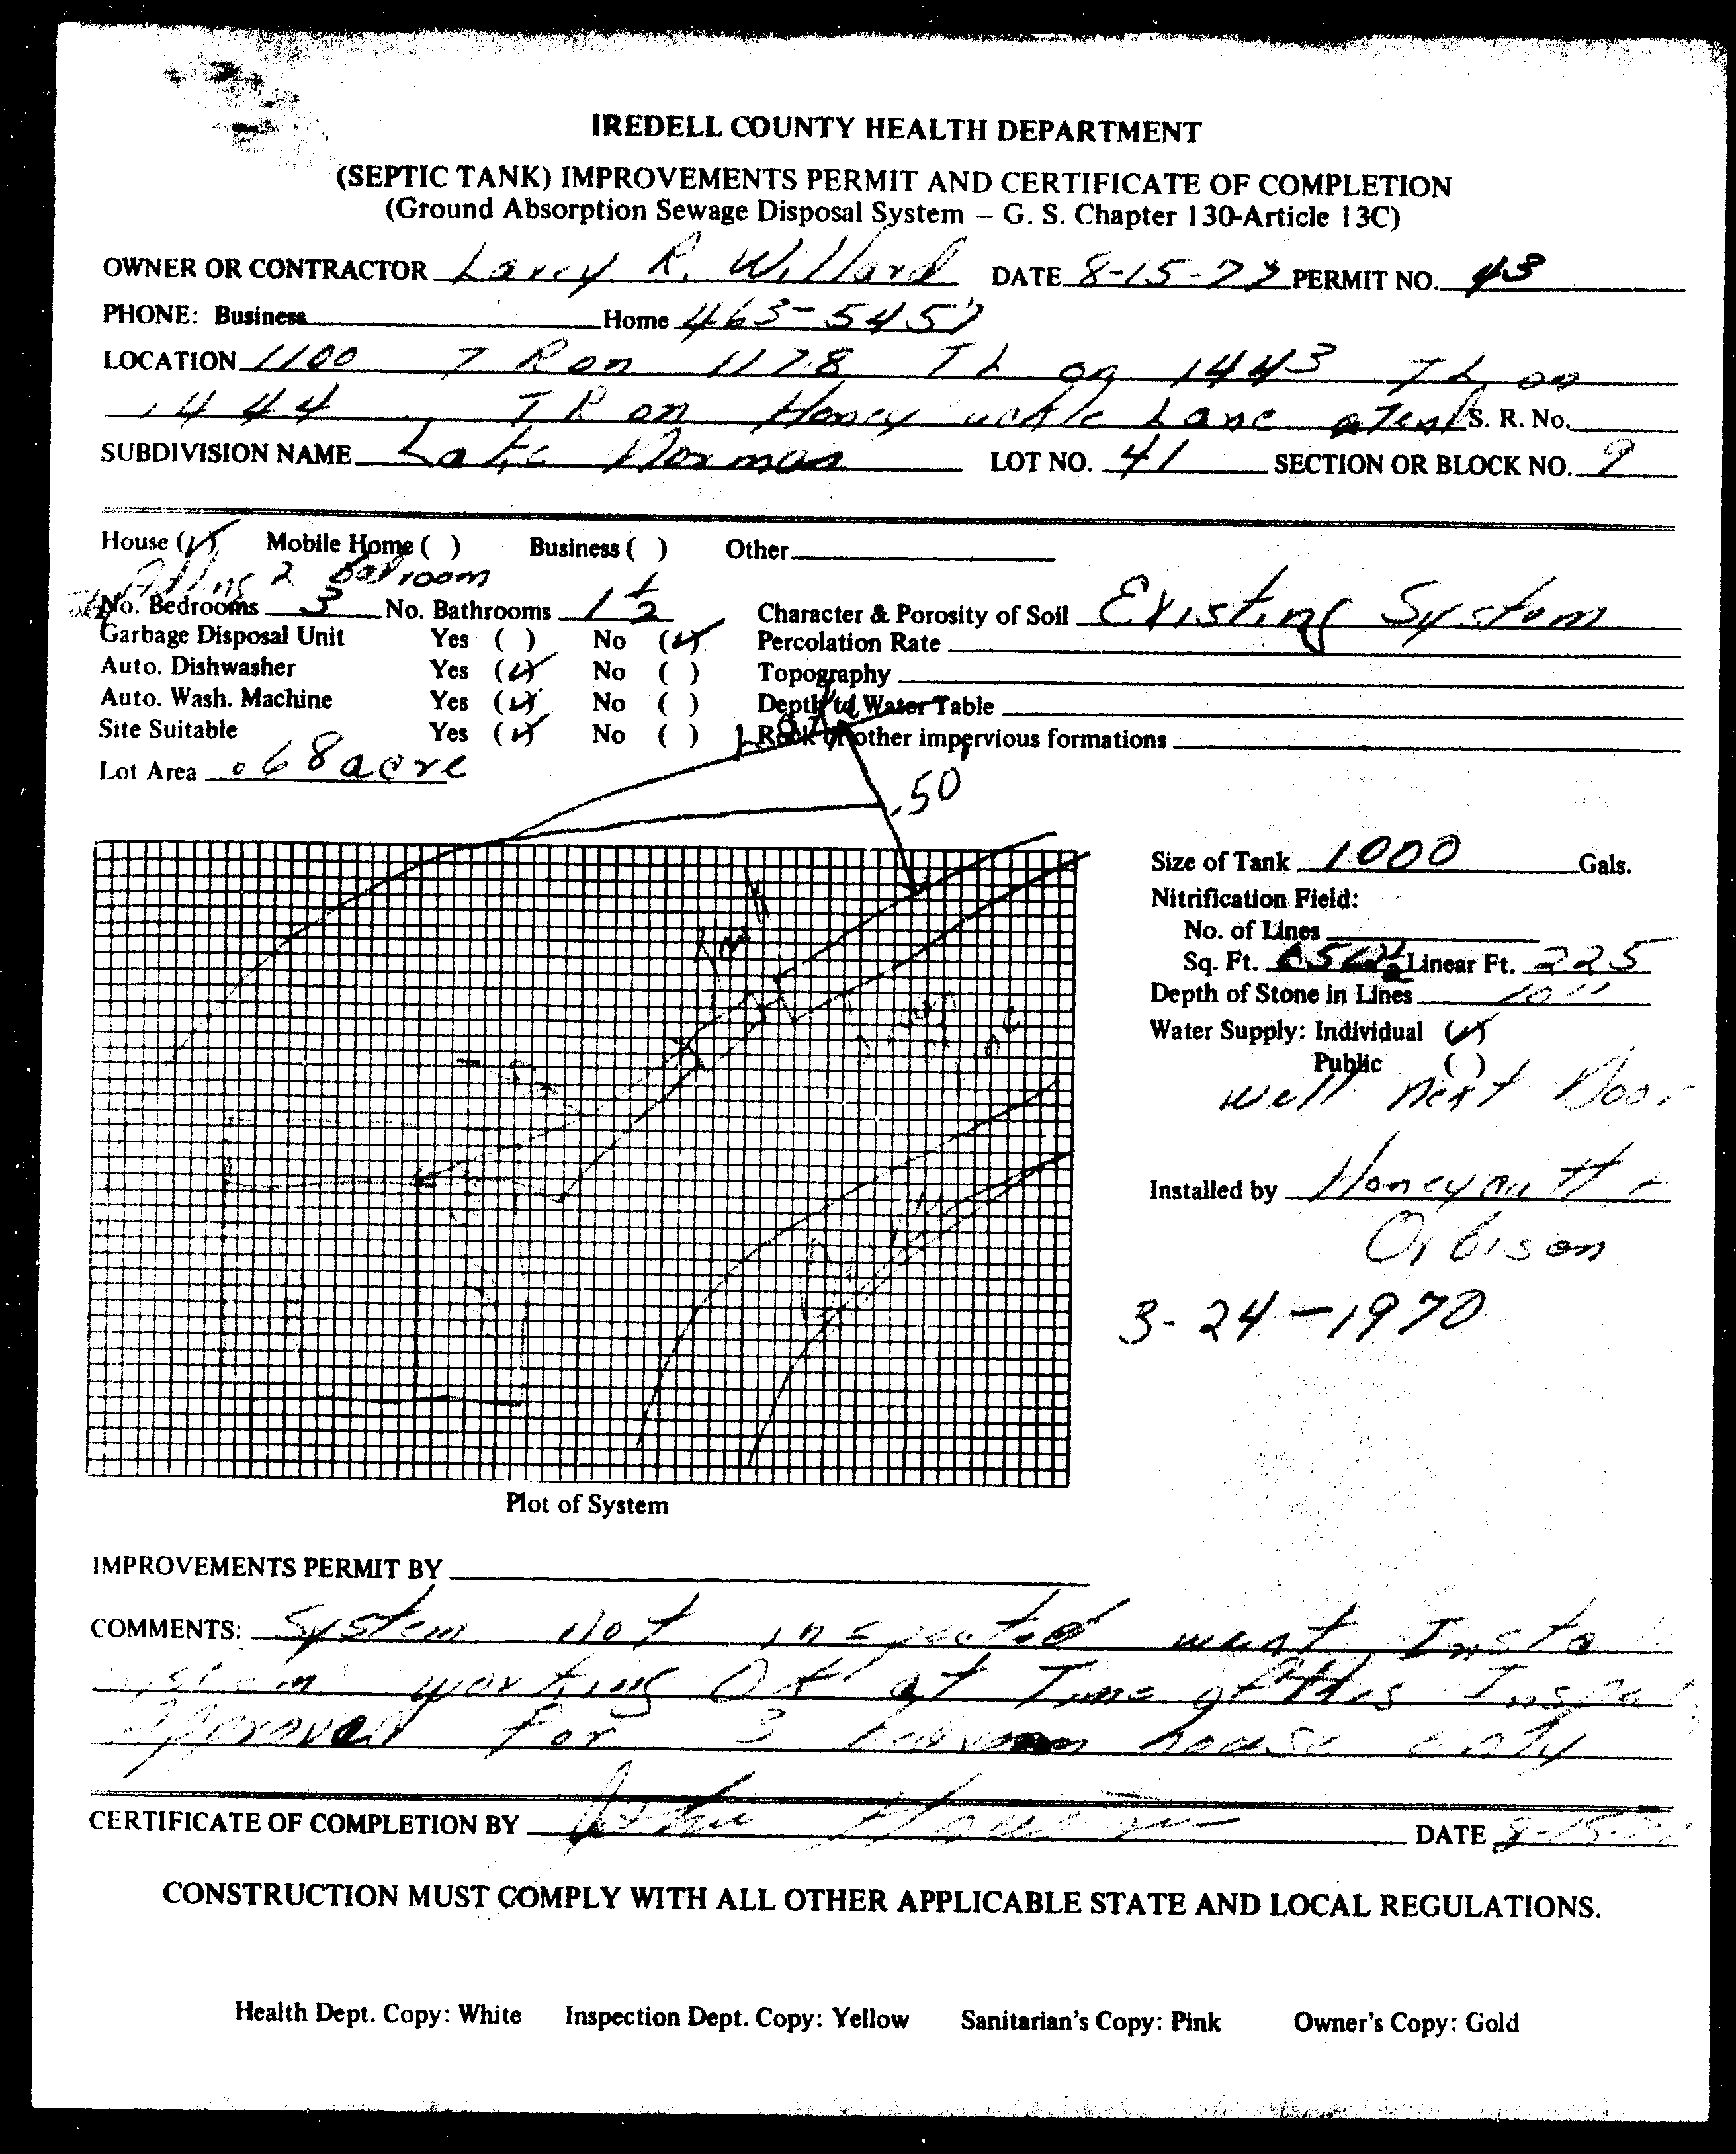 IREDELL COUNTY HEALTH DEPARTMENT
(SEPTIC TANK) IMPROVEMENTS PERMIT AND CERTIFICATE OF COMPLETION
(Ground Absorption Sewage Disposal System – G. S. Chapter 130-Article 13C)
OWNER OR CONTRACTOR Larry R. Willard DATE 8-15-77 PERMIT NO. 43
PHONE: Business Home 463-5457
LOCATION 1100 T R on 1178 T L on 1443 T L on
1444 T R on Honey uckle Lane at end S. R. No.
SUBDIVISION NAME Lake Norman LOT NO. 41 SECTION OR BLOCK NO. 9
House (✓) Mobile Home ( ) Business ( ) Other
Adding 2 Bedroom
No. Bedrooms 3 No. Bathrooms 1 1/2 Character & Porosity of Soil Existing System
Garbage Disposal Unit Yes ( ) No (✓) Percolation Rate
Auto. Dishwasher Yes (✓) No ( ) Topography
Auto. Wash. Machine Yes (✓) No ( ) Depth to Water Table
Site Suitable Yes (✓) No ( ) Rock or other impervious formations
Lot Area .68 acre
50
Size of Tank 1000 Gals.
Nitrification Field:
No. of Lines
Sq. Ft. Linear Ft. 225
Depth of Stone in Lines 10"
Water Supply: Individual (✓)
Public ( )
well next Door
Installed by Honeycutt +
Orbison
3-24-1970
Plot of System
IMPROVEMENTS PERMIT BY
COMMENTS: System not inspected went Insta
working OK at Time of this Inspe
Approved For 3 bedroom house only
CERTIFICATE OF COMPLETION BY DATE 8-15-77
CONSTRUCTION MUST COMPLY WITH ALL OTHER APPLICABLE STATE AND LOCAL REGULATIONS.
Health Dept. Copy: White Inspection Dept. Copy: Yellow Sanitarian's Copy: Pink Owner's Copy: Gold